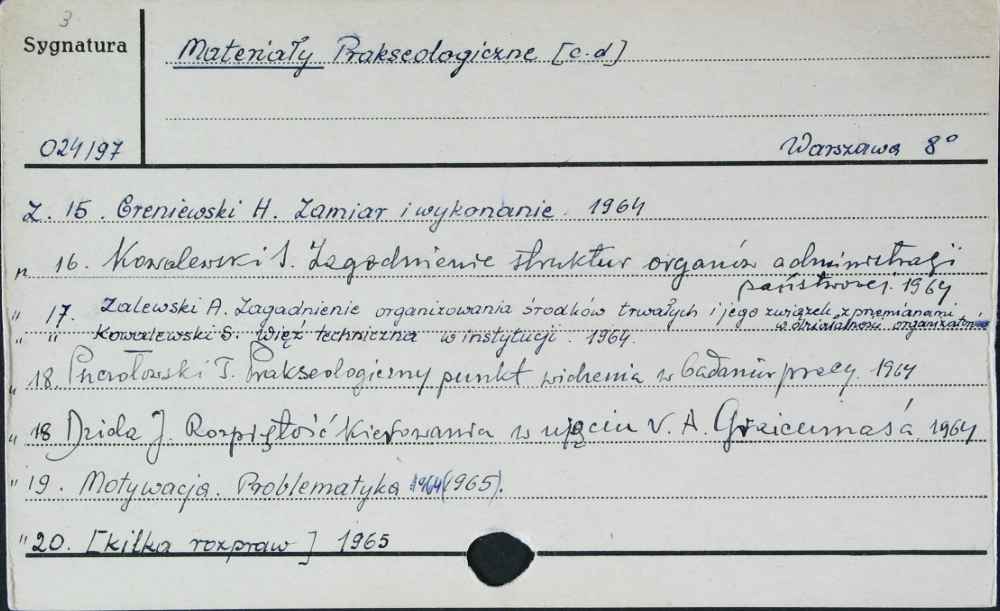 3
Sygnatura
Materiały Prakseologiczne [c.d]
024/97
Warszawa 8°
Z. 15. Greniewski H. Zamiar i wykonanie. 1964
" 16. Kowalewski S. Zagadnienie struktur organów administracji
państwowej. 1964
" 17. Zalewski A. Zagadnienie organizowania środków trwałych i jego związek z przemianami
w działalności organizatorów
" " Kowalewski S. Więź techniczna w instytucji. 1964.
" 18. Pszczołowski T. Prakseologiczny punkt widzenia w badaniu pracy. 1964
" 18 Dzida J. Rozpiętość kierowania w ujęciu V. A. Graicunasa. 1964
" 19. Motywacja. Problematyka 1964 (1965).
" 20. [kilka rozpraw] 1965